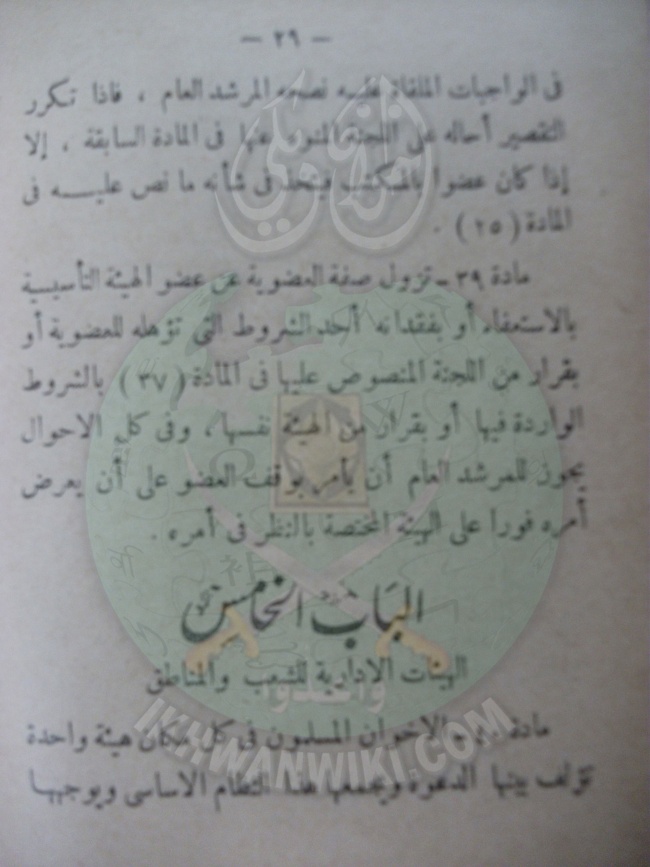 — ٢٩ —
فى الواجبات الملقاة عليه نصحه المرشد العام ، فاذا تكرر
التقصير أحاله على اللجنة المنوه عنها فى المادة السابقة ، إلا
إذا كان عضوا بالمكتب فيتخذ فى شأنه ما نص عليه فى
المادة ( ٢٥ ) .
مادة ٣٩ - تزول صفة العضوية عن عضو الهيئة التأسيسية
بالاستعفاء أو بفقدانه أحد الشروط التى تؤهله للعضوية أو
بقرار من اللجنة المنصوص عليها فى المادة ( ٣٧ ) بالشروط
الواردة فيها أو بقرار من الهيئة نفسها ، وفى كل الاحوال
يجوز للمرشد العام أن يأمر بوقف العضو على أن يعرض
أمره فوراً على الهيئة المختصة بالنظر فى أمره .
الباب الخامس
الهيئات الادارية للشعب والمناطق
مادة الاخوان المسلمون فى كل مكان هيئة واحدة
تؤلف بينها الدعوة ويجمعها هذا النظام الاساسى ويوجهها
وأعدوا
IKHWANWIKI.COM